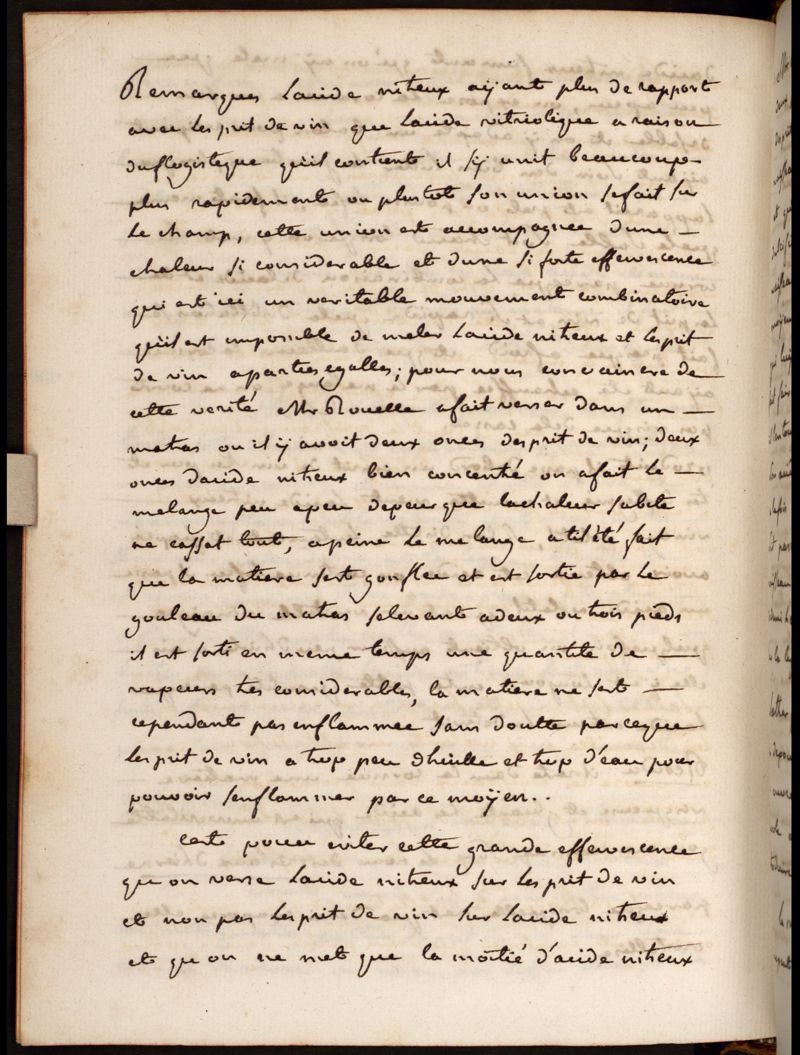 Remarques Lacide nitreux aÿant plus de rapport
avec lesprit de vin que Lacide vitriolique a raison
duflogisteque qu'il contient il s'ÿ unit beaucoup
plus rapidement ou plustot son union sefait sur
le champ, cette union est accompagnee d'une —
chaleur si considerable et d'une si forte effervescence
qui est ici un veritable mouvement combinatoire
qu'il est impossible de meler Lacide nitreux et lesprit
de vin aparties egalles; pour nous convaincre de —
cette verité Mr Rouelle afait verser dans un —
matras ou il ÿ avoit deux onces desprit de vin; deux
onces dacide nitreux bien concentré on afait le —
melange peu apeu depeur que lachaleur subite
ne cassat tout, apeine le melange atil été fait
que la matiere sest gonflee et est sortie par le
gouleau du matras selevant adeux ou trois pieds
il est sorti en meme temps une quantite de —
vapeurs tres considerables, la matiere ne sest —
cependant pas enflammee sans doutte parceque
lesprit de vin a trop peu d'huille et trop d'eau pour
pouvoir senflammer par ce moÿen..
cest pour eviter cette grande effervescence
qu on verse Lacide nitreux sur lesprit de vin
et non pas lesprit de vin sur Lacide nitreux
et qu on ne met que la moitié d'acide nitreux